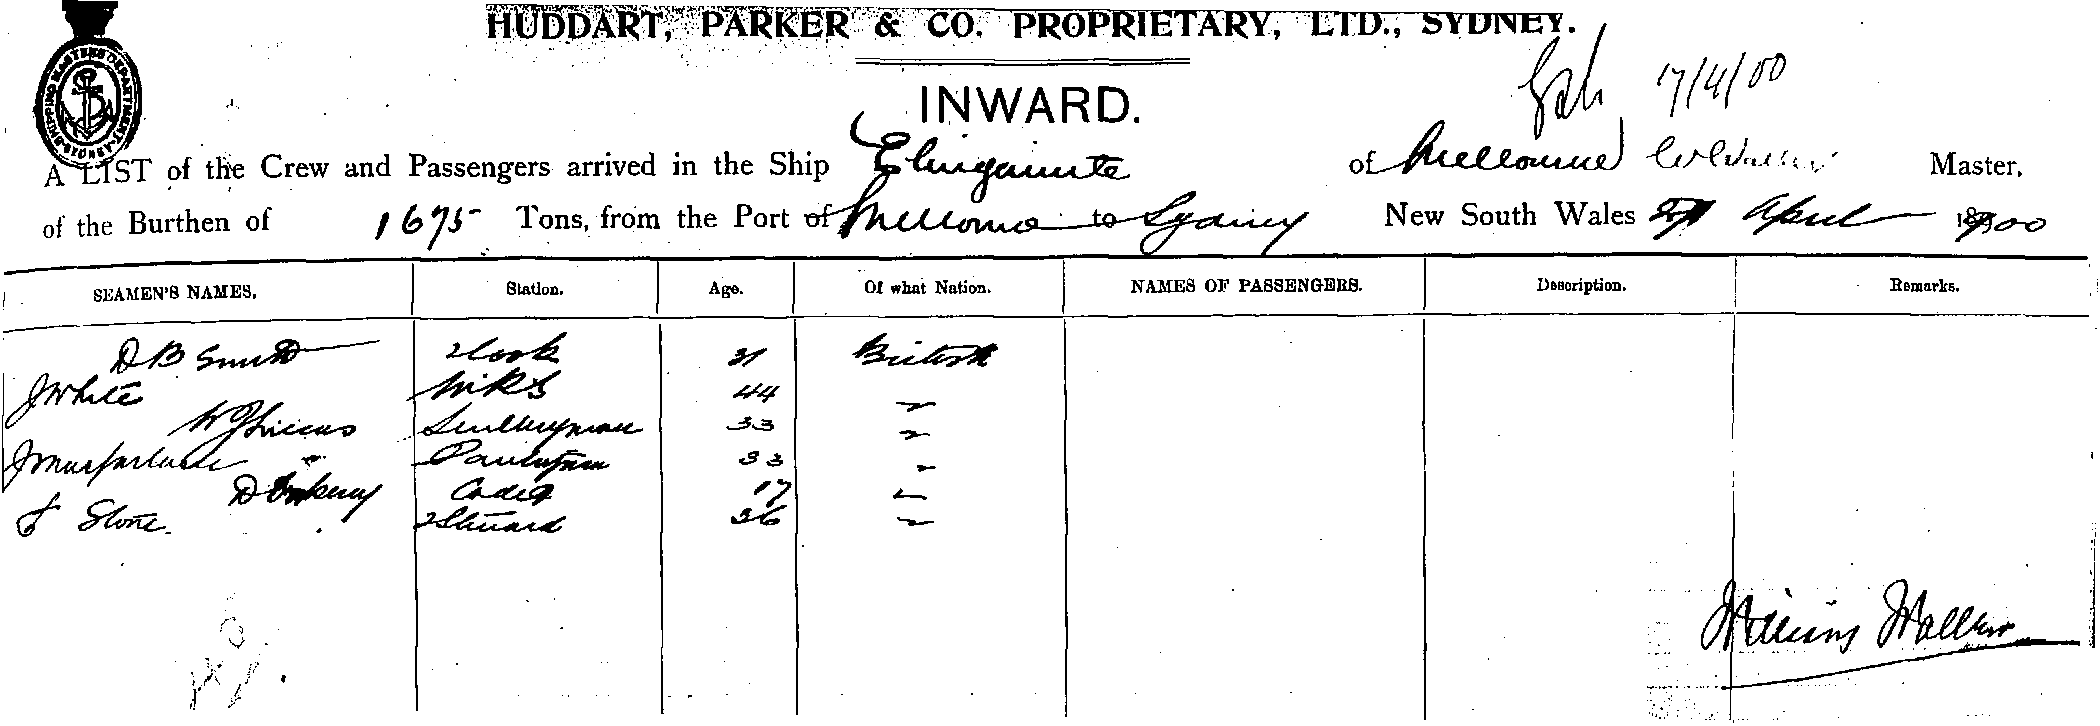 HUDDART, PARKER & CO. PROPRIETARY, LTD., SYDNEY.
SHIPPING MASTERS DEPARTMENT SYDNEY
17/4/00
INWARD.
A LIST of the Crew and Passengers arrived in the Ship Elingamite of Melbourne W Waller Master,
of the Burthen of 1675 Tons, from the Port of Melbourne to Sydney New South Wales April 1900
SEAMEN'S NAMES. Station. Age. Of what Nation. NAMES OF PASSENGERS. Description. Remarks.
D B Smith 2 Cook 31 British
J White 44 "
W J Lucas Sculleryman 33 "
J Macfarlane Pantryman 33 "
D Cadet 17 "
J Stone. 2 Steward 36 "
William Waller